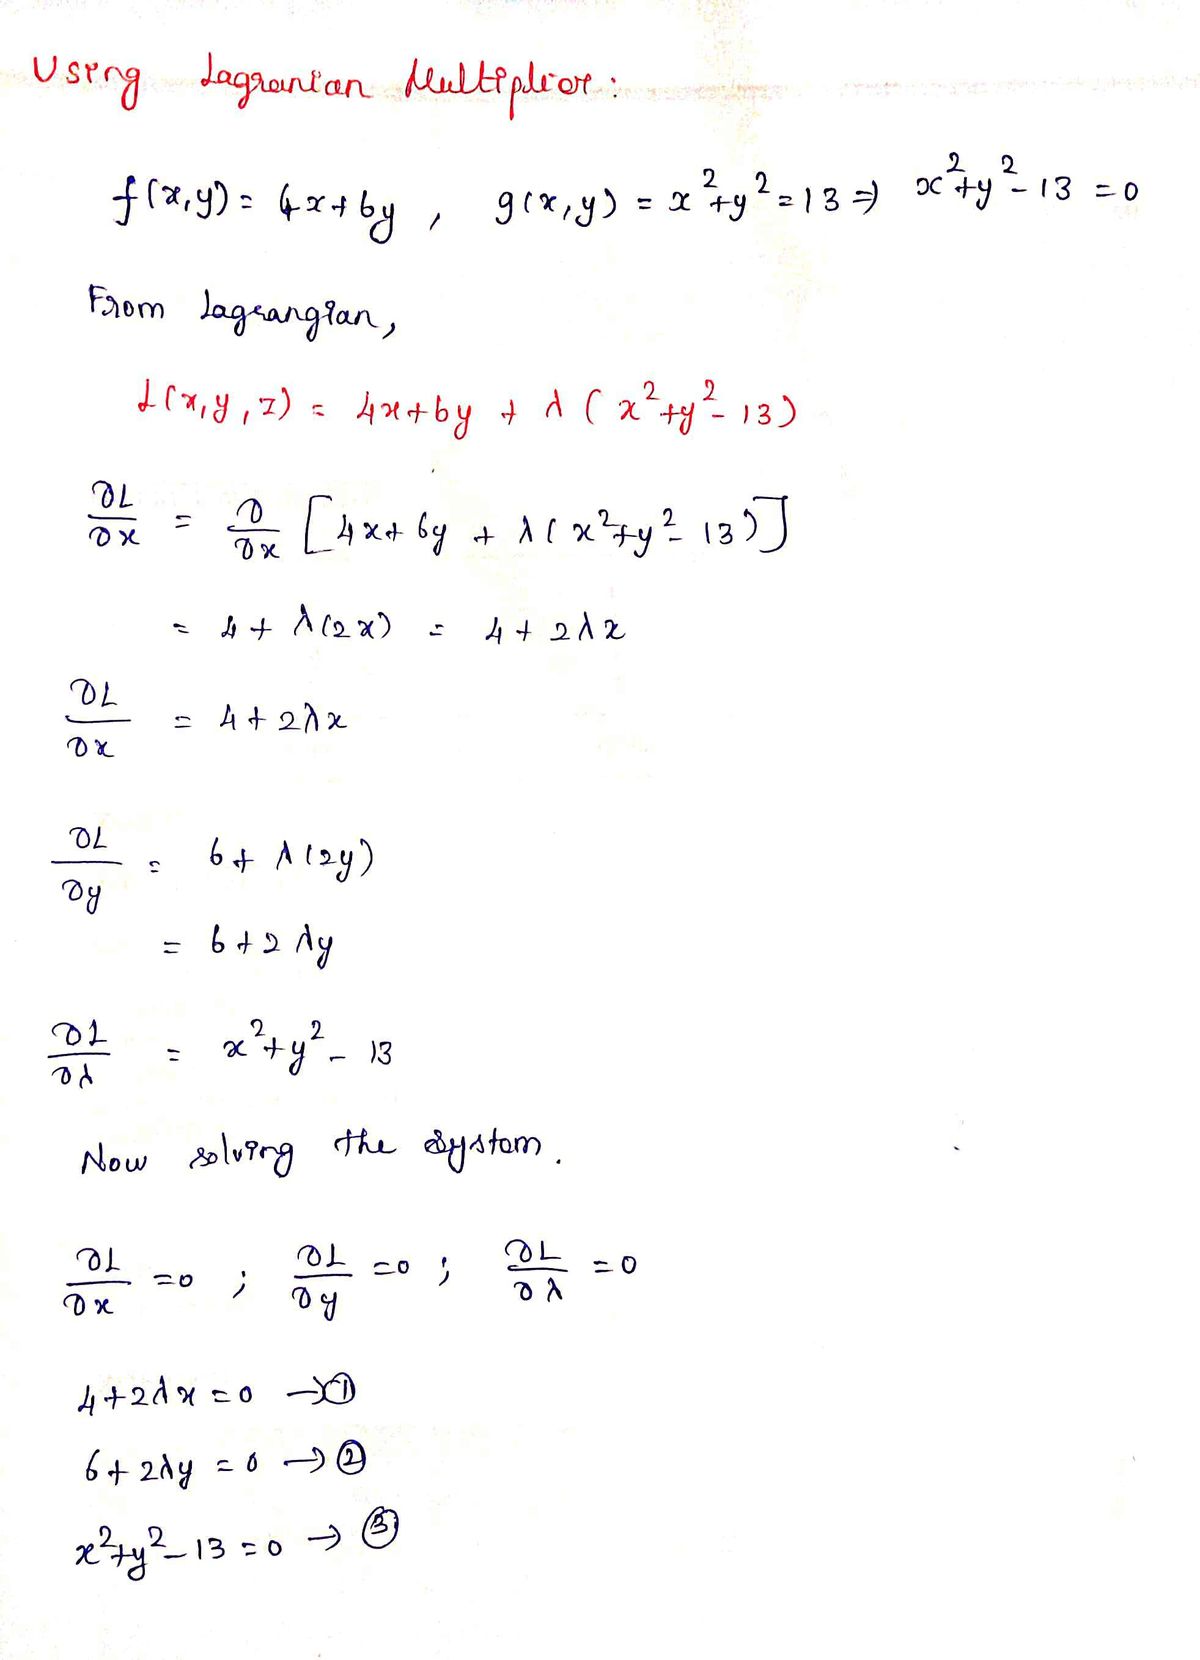 Using Lagranian Multiplier:
f(x,y) = 4x+6y , g(x,y) = x²+y²=13 ⇒ x²+y²-13 =0
From Lagrangian,
L(x,y,z) = 4x+6y + λ(x²+y²-13)
∂L/∂x = ∂/∂x [4x+6y + λ(x²+y²-13)]
= 4+ λ(2x) = 4+2λx
∂L/∂x = 4+2λx
∂L/∂y = 6+ λ(2y)
= 6+2λy
∂L/∂λ = x²+y²-13
Now solving the system.
∂L/∂x =0 ; ∂L/∂y =0 ; ∂L/∂λ =0
4+2λx =0 → ①
6+2λy =0 → ②
x²+y²-13 =0 → ③